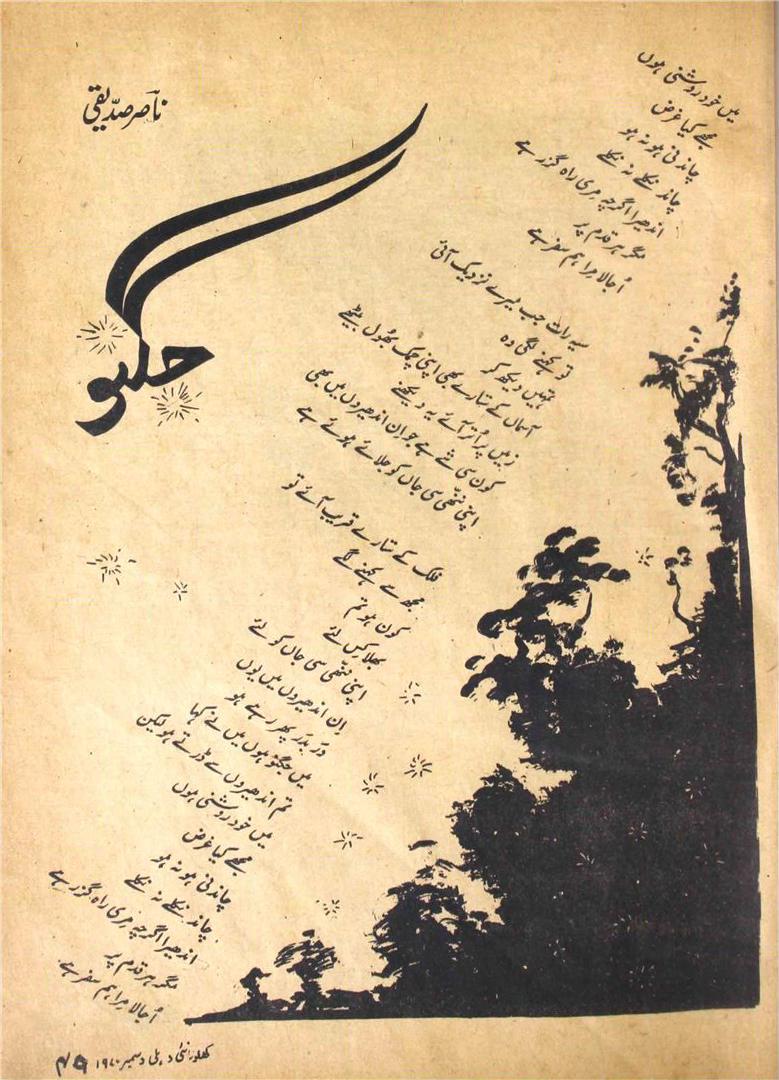 ناصر صدّیقی
جگنو
میں خود روشنی ہوں
مجھے کیا غرض
چاندنی ہو نہ ہو
چاند نکلے نہ نکلے
اندھیرا اگرچہ مِری راہ گزر ہے
مگر ہر قدم پر
اُجالا مِرا ہم سفر ہے
سیہ رات جب میرے نزدیک آئی
تو بجھنے لگی وہ
تمہیں دیکھ کر
آسماں کے ستارے بھی اپنی چمک بھُول بیٹھے
زمیں پر اُتر آئے یہ دیکھنے
کون سی شے ہے جو اِن اندھیروں میں بھی
اپنی ننّھی سی جاں کو جلائے ہوئے ہے
فلک کے ستارے قریب آئے تو
مجھ سے کہنے لگے
کون ہو تم
بھلا کِس لئے
اپنی ننّھی سی جاں کو لئے
اِن اندھیروں میں یوں
در بدر پھر رہے ہو
میں جگنو ہوں میں نے کہا
تم اندھیروں سے ڈرتے ہو لیکن
میں خود روشنی ہوں
مجھے کیا غرض
چاندنی ہو نہ ہو
چاند نکلے نہ نکلے
اندھیرا اگرچہ مِری راہ گزر ہے
مگر ہر قدم پر
اُجالا مِرا ہم سفر ہے
کھلونا نئی دہلی دسمبر ۱۹۷۰ ۴۵